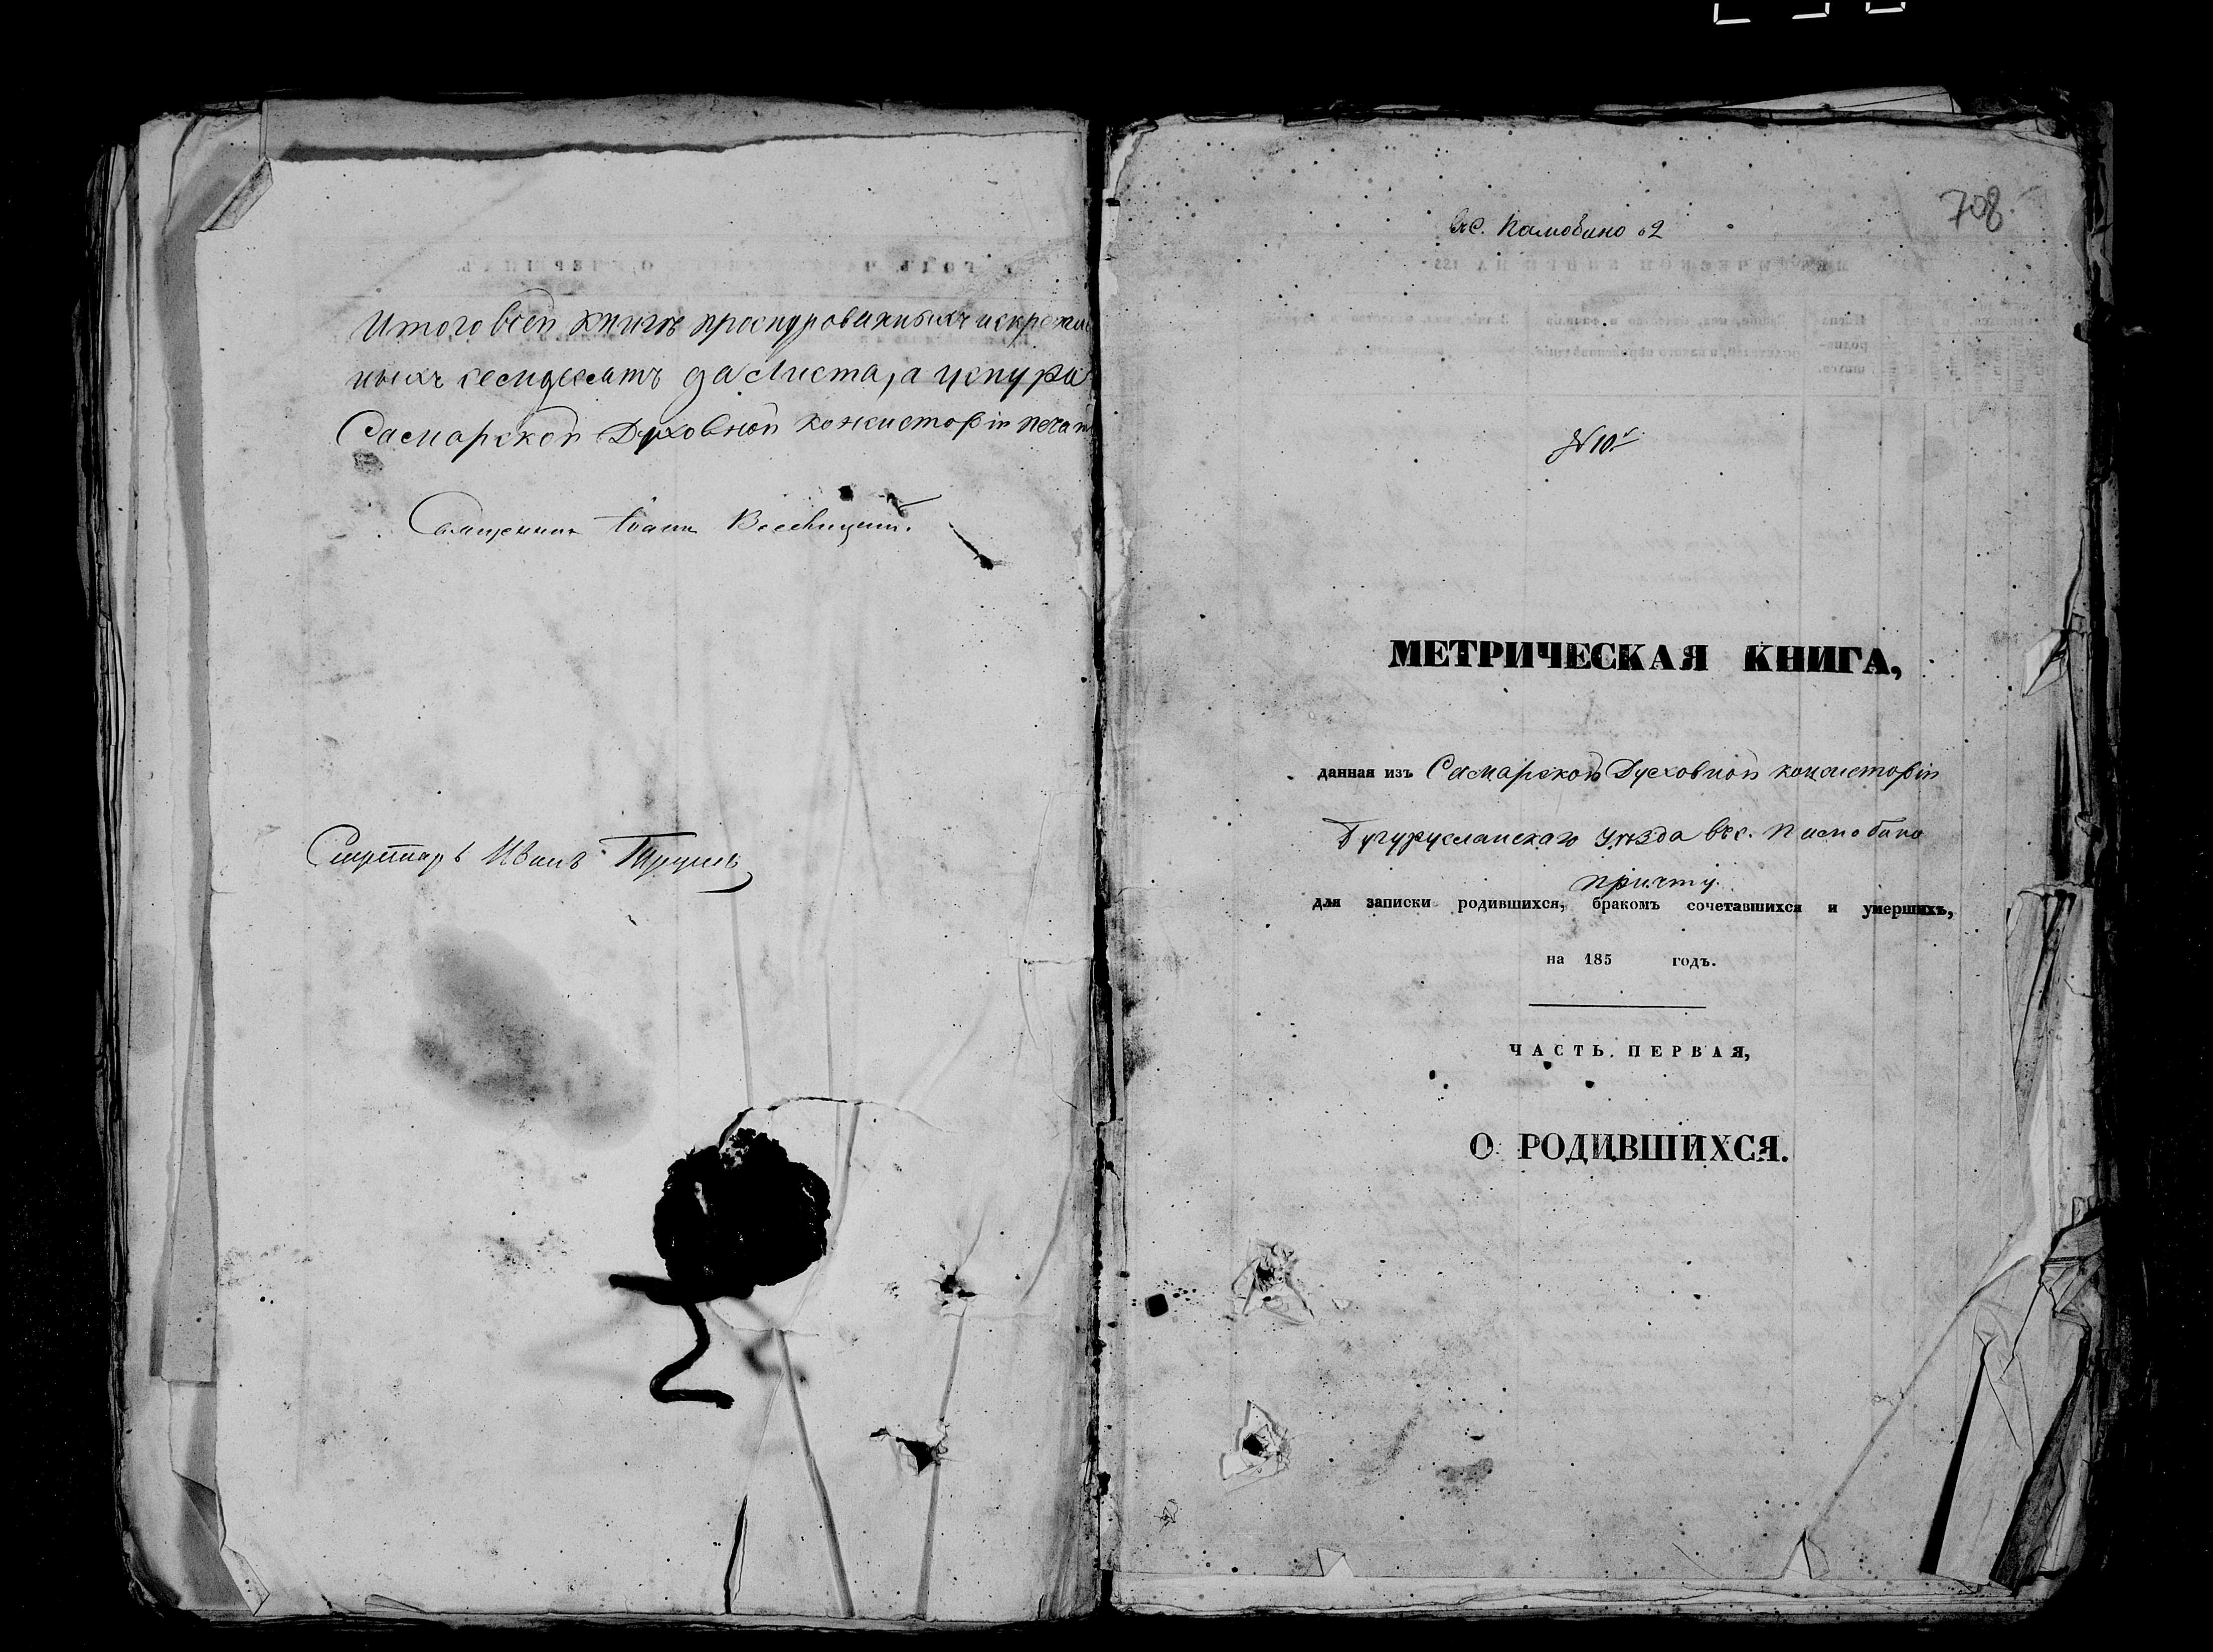 Итого всей книгѣ прошнурованныхъ и скрѣплен
ныхъ семьдесятъ два листа, а у шнура
Самарской Духовной консисторіи печат
Священникъ Іоаннъ
Секретарь Иванъ
708.
въ с.
№ 10й
МЕТРИЧЕСКАЯ КНИГА,
данная изъ Самарской Духовной консисторіи
Бугурусланскаго уѣзда въ с.
причту.
для записки родившихся, бракомъ сочетавшихся и умершихъ,
на 185 годъ.
ЧАСТЬ ПЕРВАЯ,
О РОДИВШИХСЯ.